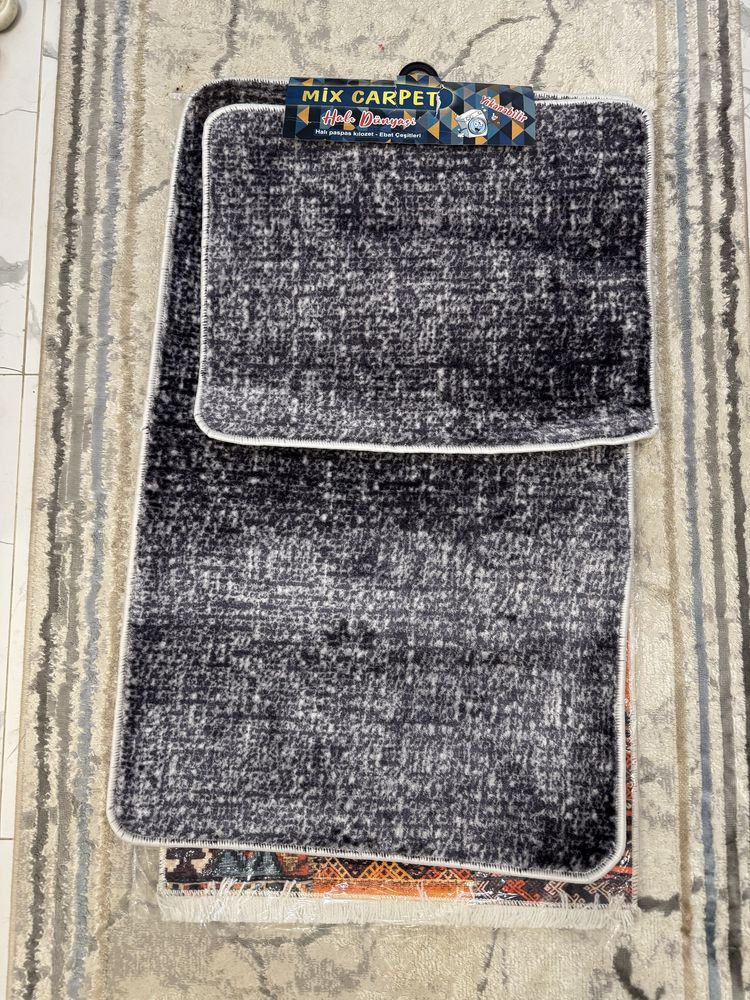 MİX CARPET
Yıkanabilir
Halı Dünyası
Halı paspas klozet - Ebat Çeşitleri